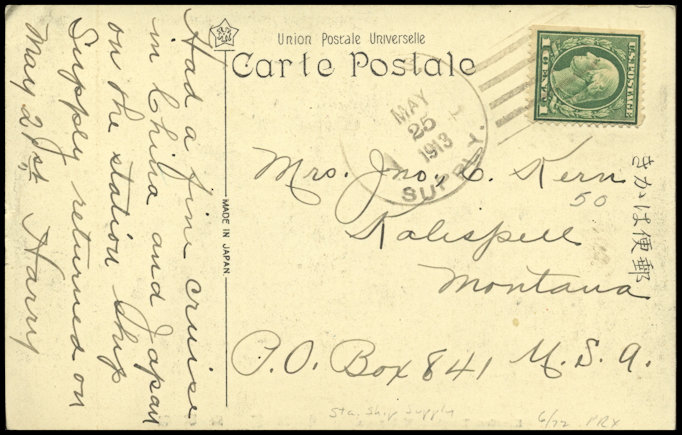 Union Postale Universelle
Carte Postale
MAY
25
1913
SUPPLY
U.S. POSTAGE
1 CENT 1
Had a fine cruise
in China and Japan
on the station ship
Supply returned on
May 21st Harry
MADE IN JAPAN
Mrs. Jno. C. Kern
50
Kalispell
Montana
P.O. Box 841 U.S.A.
きかは便郵
Sta. Ship Supply
6/72 PRX